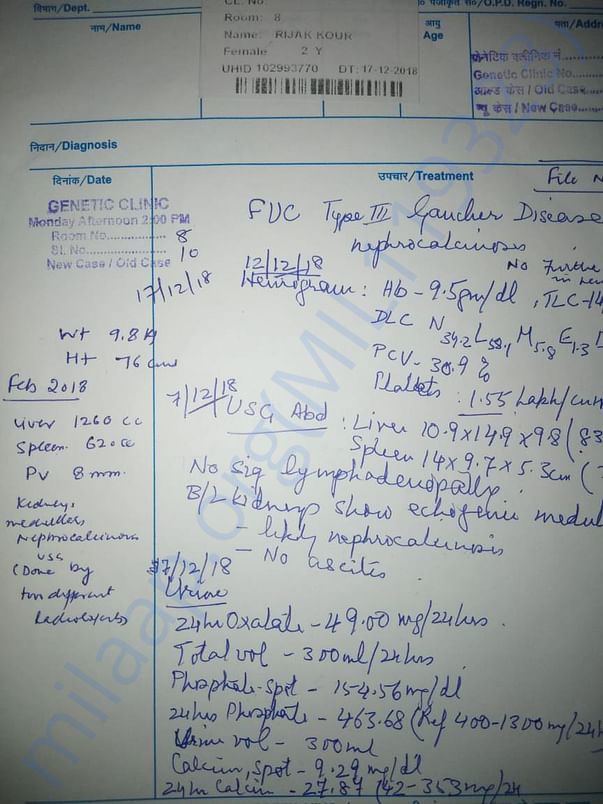 विभाग/Dept.
Room: 8
पंजीकृत सं०/O.P.D. Regn. No.
नाम/Name
Name: RIJAK KOUR
Female 2 Y
UHID 102993770 DT: 17-12-2018
आयु
Age
पता/Addre
Genetic Clinic No.
ओल्ड केस / Old Case
न्यू केस / New Case
निदान/Diagnosis
दिनांक/Date
उपचार/Treatment
File N
GENETIC CLINIC
Monday Afternoon 2:00 PM
Room No. 8
Sl. No. 10
New Case / Old Case
17/12/18
FUC Type III Gaucher Disease
nephrocalcinosis
No Further
12/12/18
Hemogram: Hb - 9.5gm/dl, TLC-14
DLC N39.2 L58.1 M5.8 E1.3
PCV - 30.9 %
Platlets : 1.55 lakh/cum
Wt 9.8 kg
Ht 76 cms
Feb 2018
Liver 1260 cc
Spleen 620 cc
PV 8 mm.
Kidneys
medullary
Nephrocalcinosis
USG
(Done by
two different
Radiologists
7/12/18
USG Abd : Liver 10.9x14.9x9.8 (83
Spleen 14x9.7x5.3cm (
No sig lymphadenopathy.
B/L kidneys show echogenic medul
- likely nephrocalcinosis
- No ascites
17/12/18
Urine
24hr Oxalate - 49.00 mg/24hrs.
Total vol - 300ml/24hrs.
Phosphate-spot - 154.56mg/dl
24hrs Phosphate - 463.68 (Ref 400-1300mg/24h
Urine vol - 300ml
Calcium, spot - 9.29 mg/dl
24hr Calcium - 27.87 (42-353mg/24